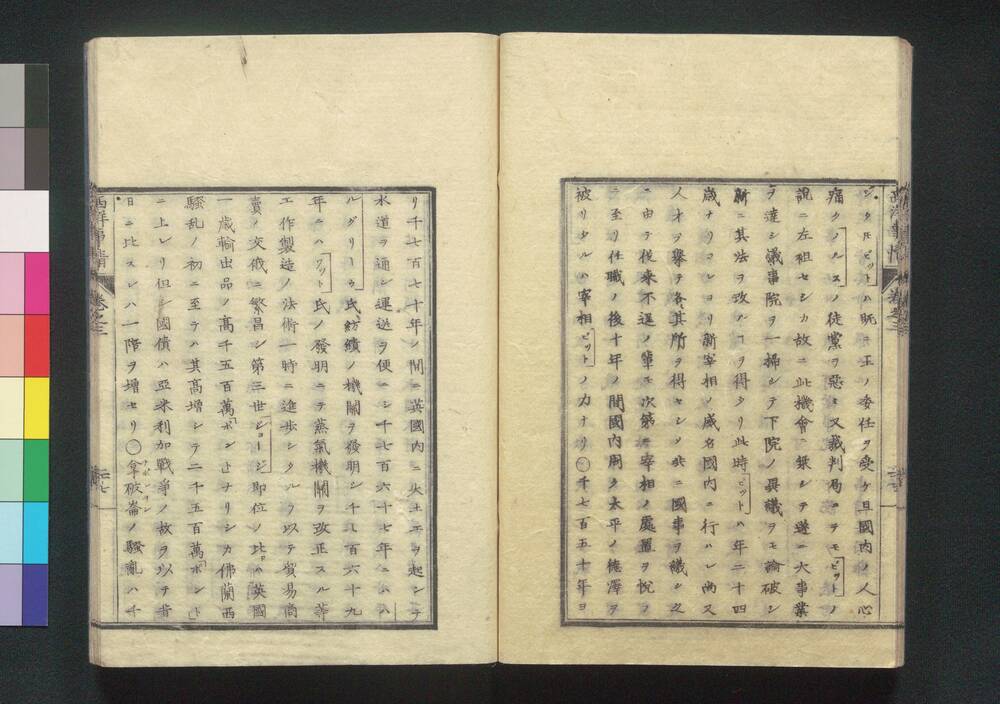 シタルモ「ピット」ハ既ニ王ノ委任ヲ受ケ且國内ノ人心
痛ク「ノルス」ノ徒黨ヲ惡ミ又裁判局ニテモ「ピット」ノ
説ニ左袒セシカ故ニ此機會ニ乘シテ遂ニ大事業
ヲ達シ議事院ヲ一掃シテ下院ノ異議ヲモ論破シ
新ニ其法ヲ改ルヿヲ得タリ此時「ピット」ハ年二十四
歳ナリコレヨリ新宰相ノ威名國内ニ行ハレ尚又
人才ヲ擧テ各其所ヲ得セシメ共ニ國事ヲ議シ之
ニ由テ從來不逞ノ輩モ次第ニ宰相ノ處置ヲ悦フ
ニ至リ任職ノ後十年ノ間國内周ク太平ノ德澤ヲ
被リタルハ宰相「ピット」ノ力ナリ〇千七百五十年ヨ
西洋事情 卷之三
リ千七百七十年ノ間ニ英國内ニ大土工ヲ起シテ
水道ヲ通シ運送ヲ便ニシ千七百六十七年ニハハ
ルグリーウ氏紡績ノ機關ヲ發明シ千七百六十九
年ニハ「ワット」氏ノ發明ニテ蒸氣機關ヲ改正スル等
工作製造ノ法術一時ニ進歩シタルヲ以テ貿易商
賣ノ交俄ニ繁昌シ第三世「ジョージ」即位ノ比ハ英國
一歳輸出品ノ高千五百萬「ポンド」ナリシカ佛蘭西
騷乱ノ初ニ至テハ其高增シテ二千五百萬「ポンド」
ニ上レリ但シ國債ハ亞米利加戰爭ノ故ヲ以テ昔
日ニ比スレハ一層ヲ增セリ〇拿破崙ノ騷亂ハ千
西洋事情 卷之三